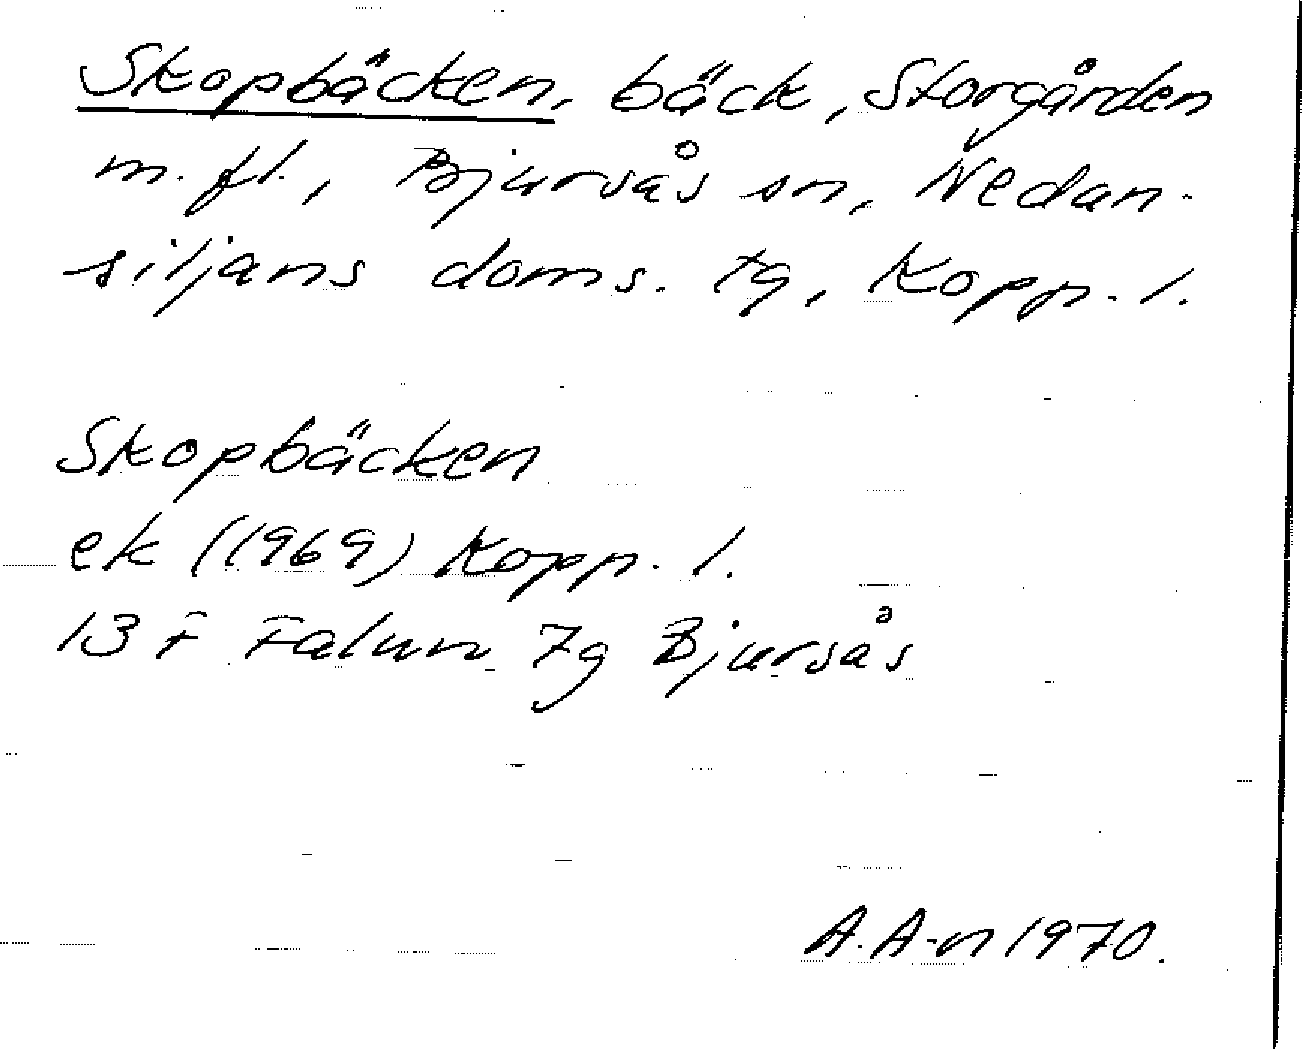 Skopbäcken, bäck, Storgården
m. fl., Bjursås sn, Nedan-
siljans doms. tg, Kopp. l.
Skopbäcken
ek (1969) Kopp. l.
13 F Falun 7g Bjursås
A. A-n 1970.